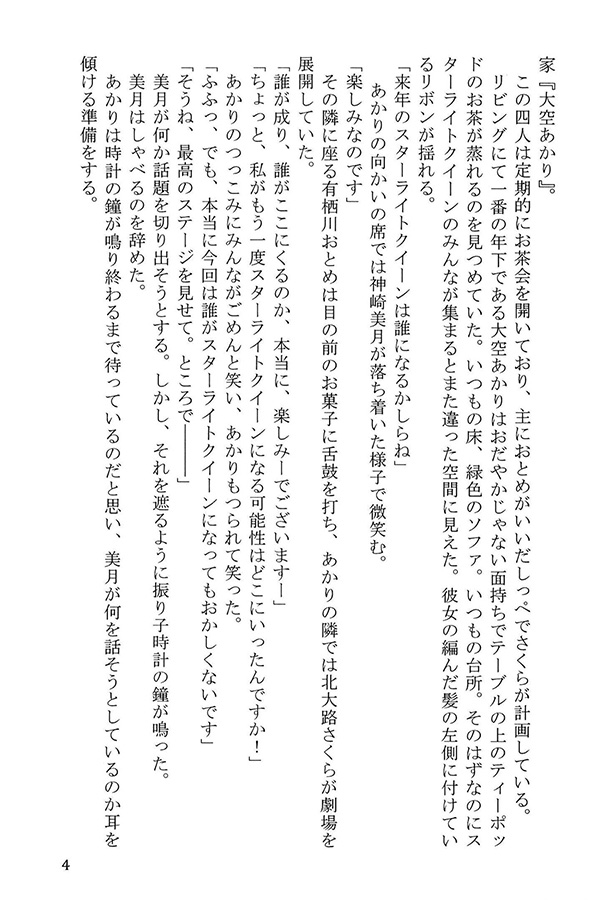 家『大空あかり』。
　この四人は定期的にお茶会を開いており、主におとめがいいだしっぺでさくらが計画している。
　リビングにて一番の年下である大空あかりはおだやかじゃない面持ちでテーブルの上のティーポッ
ドのお茶が蒸れるのを見つめていた。いつもの床、緑色のソファ。いつもの台所。そのはずなのにス
ターライトクイーンのみんなが集まるとまた違った空間に見えた。彼女の編んだ髪の左側に付けてい
るリボンが揺れる。
「来年のスターライトクイーンは誰になるかしらね」
　あかりの向かいの席では神崎美月が落ち着いた様子で微笑む。
「楽しみなのです」
　その隣に座る有栖川おとめは目の前のお菓子に舌鼓を打ち、あかりの隣では北大路さくらが劇場を
展開していた。
「誰が成り、誰がここにくるのか、本当に、楽しみーでございますー」
「ちょっと、私がもう一度スターライトクイーンになる可能性はどこにいったんですか！」
　あかりのつっこみにみんながごめんと笑い、あかりもつられて笑った。
「ふふっ、でも、本当に今回は誰がスターライトクイーンになってもおかしくないです」
「そうね、最高のステージを見せて。ところで―――」
　美月が何か話題を切り出そうとする。しかし、それを遮るように振り子時計の鐘が鳴った。
　美月はしゃべるのを辞めた。
　あかりは時計の鐘が鳴り終わるまで待っているのだと思い、美月が何を話そうとしているのか耳を
傾ける準備をする。
4